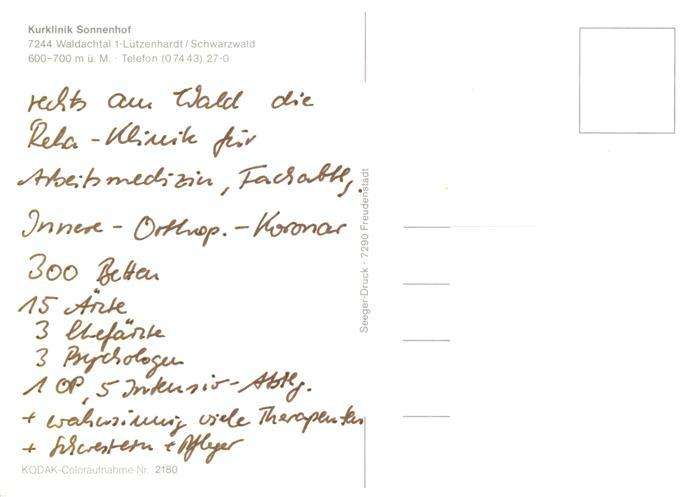 Kurklinik Sonnenhof
7244 Waldachtal 1-Lützenhardt / Schwarzwald
600–700 m ü. M. · Telefon (0 74 43) 27-0
rechts am Wald die
Reha - Klinik für
Arbeitsmedizin, Fachabtlg.
Innere - Orthop. - Koronar
300 Betten
15 Ärzte
3 Chefärzte
3 Psychologen
1 OP, 5 Intensiv - Abtlg.
+ wahnsinnig viele Therapeuten
+ Schwestern + Pfleger
KODAK-Coloraufnahme·Nr. 2180
Seeger-Druck · 7290 Freudenstadt